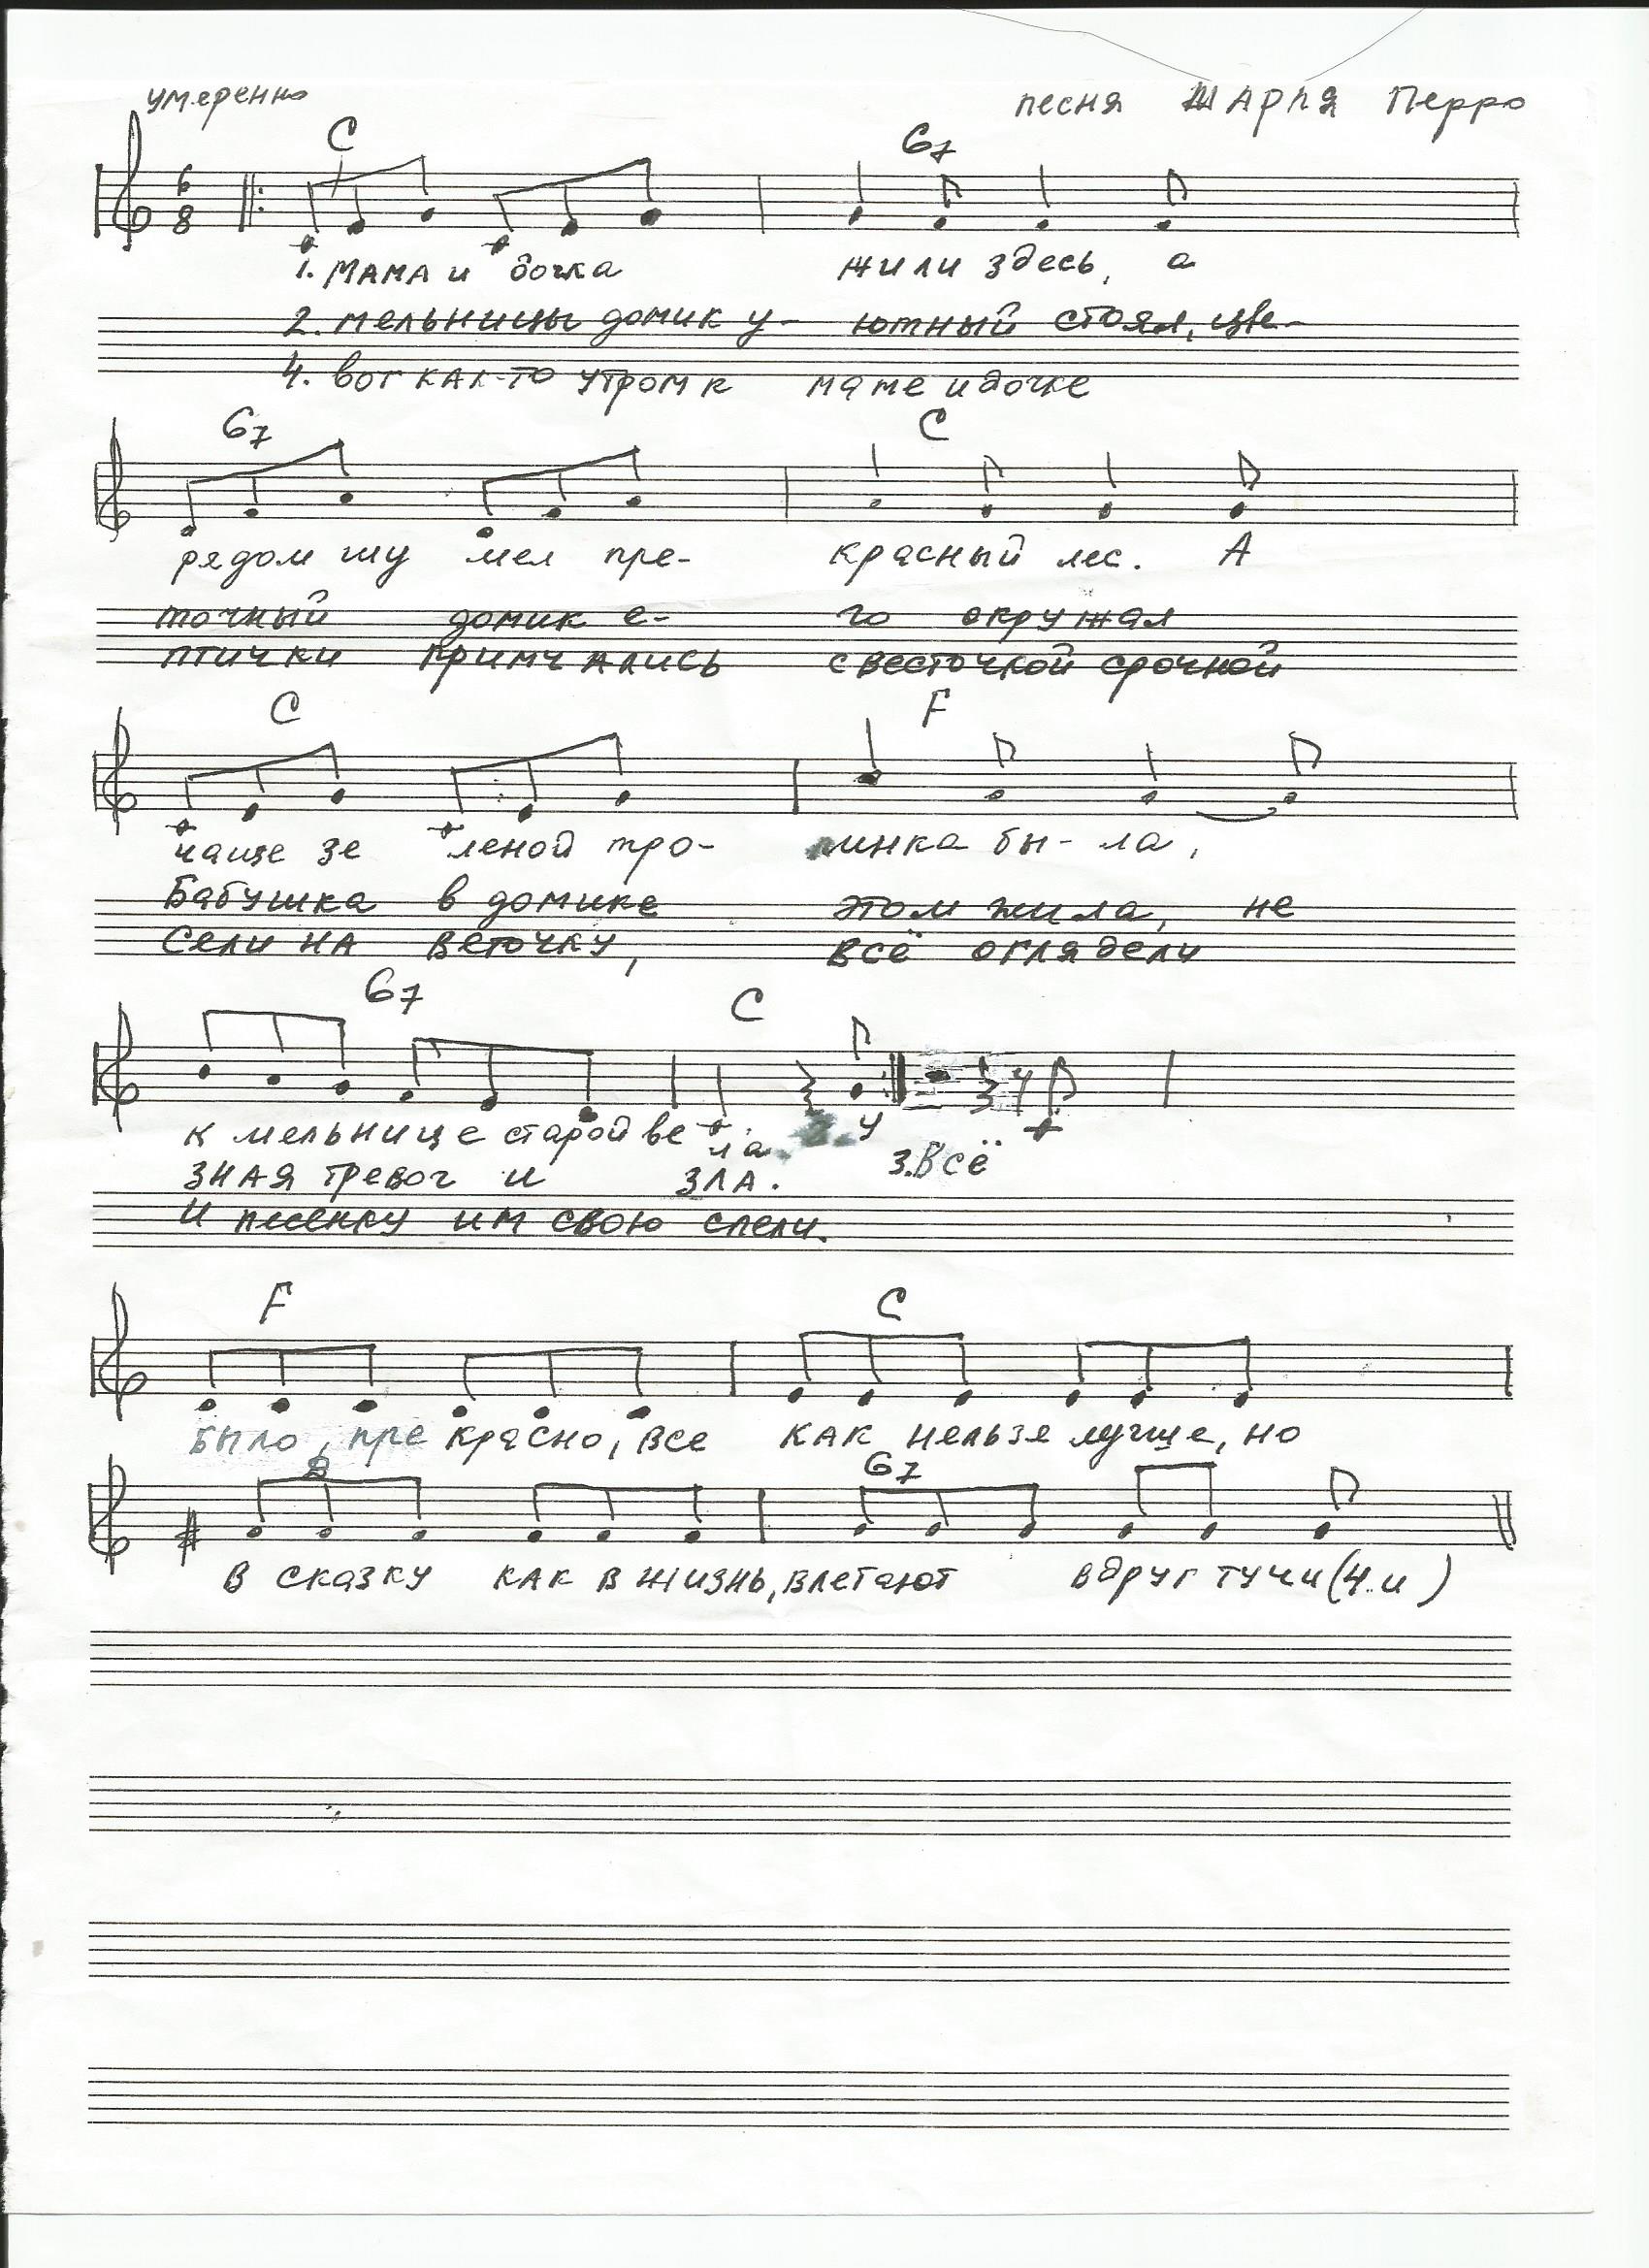 умеренно песня Шарля Перро
C G7
6
8
1. Мама и дочка жили здесь, а
2. мельницы домик у- ютный стоял, цве-
4. вот как-то утром к маме и дочке
G7 C
рядом шу мел пре- красный лес. А
точный домик е- го окружал
птички примчались с весточкой срочной
C F
чаще зе леной тро- пинка бы- ла,
Бабушка в домике этом жила, не
Сели на веточку, всё оглядели
G7 C
к мельнице старой ве ла. У
3. Всё
зная тревог и зла.
И песенку им свою спели.
F C
было, пре красно, все как нельзе лучше, но
G7
в сказку как в жизнь, влетают вдруг тучи (4. и)